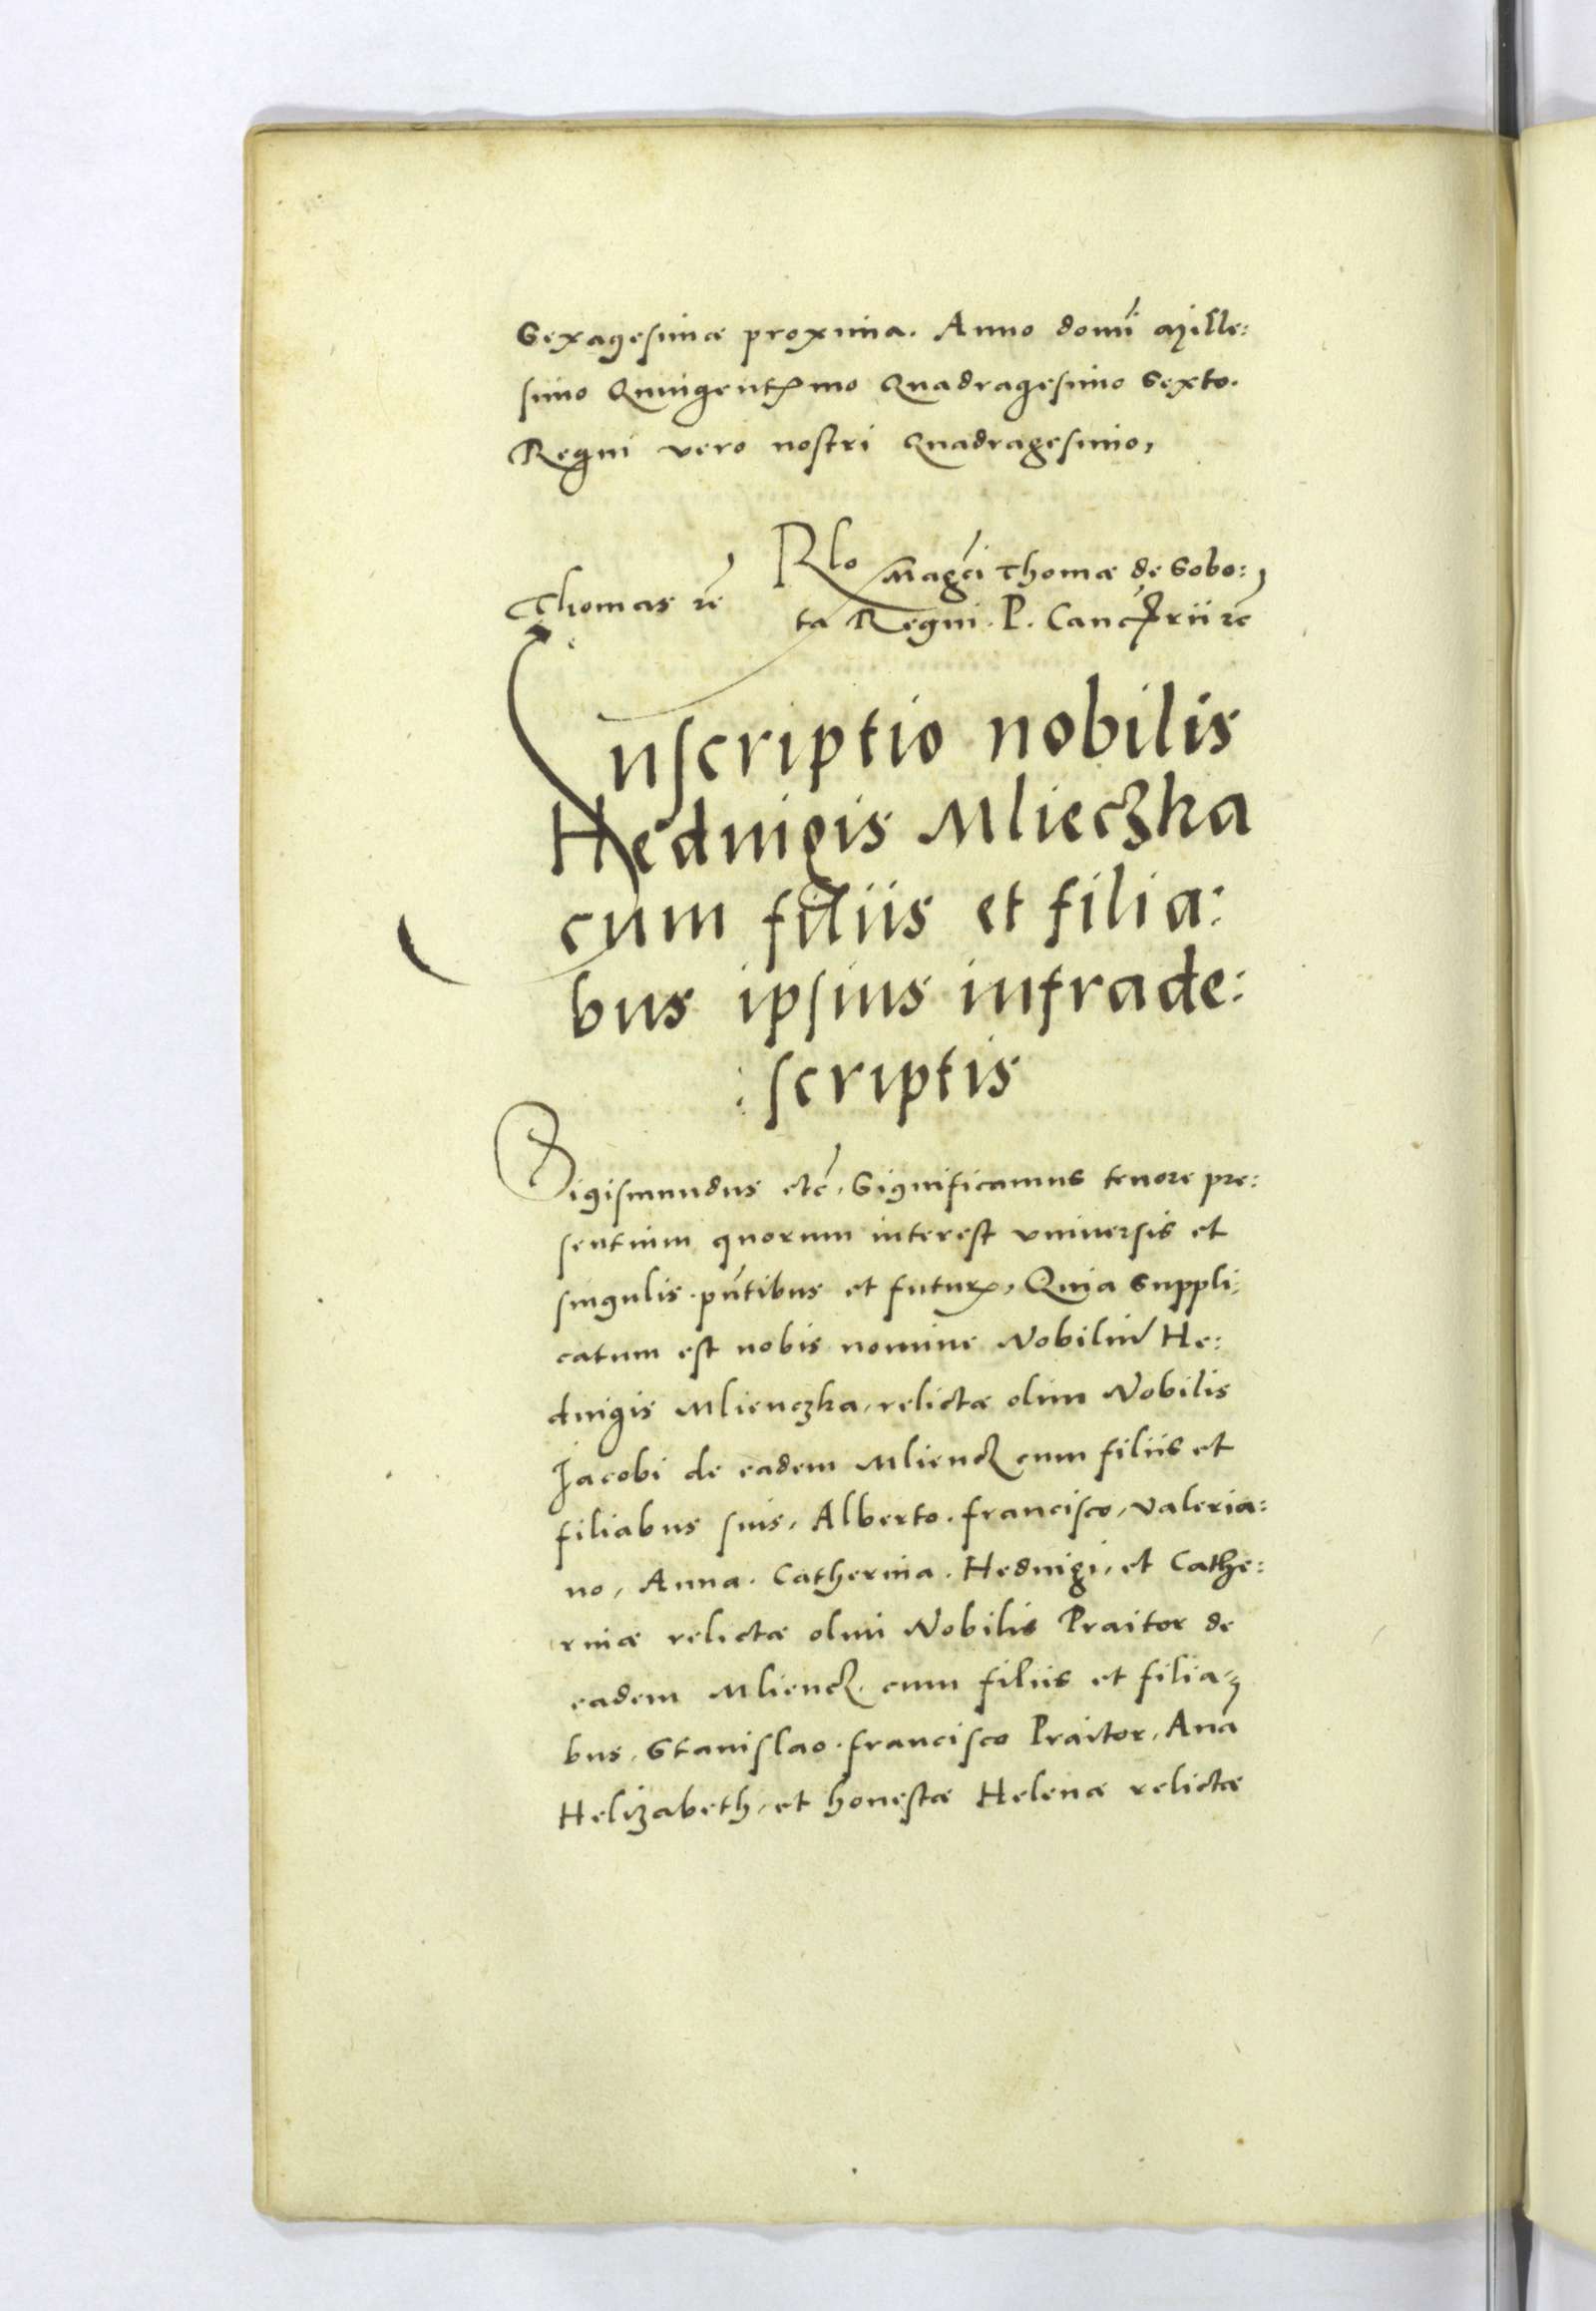 Sexagesimæ proxima. Anno domı̄ Mille:
simo Quingentꝭmo Quadragesimo Sexto.
Regni vero nostri Quadragesimo,
Thomas ꝛc̄
Rlo Mag̃ci Thomæ de Sobo:
ta Regni. P. Canc̃rii ꝛc̄
Inscriptio nobilis
Heduigis Mlieczka
cum filiis et filia:
bus ipsius infrade:
:scriptis
Sigismundus etc̄. Significamus tenore pre:
sentium quorum interest vniuersis et
singulis. pñtibus et futurꝭ, Quia Suppli:
catum est nobis nomine Nobiliũ He:
duigis Mlienczka, relictæ olim Nobilis
Jacobi de eadem Mliencz cum filiis et
filiabus suis, Alberto. francisco, Valeria:
no, Anna. Catherina. Heduigi, et Cathe:
rinæ relictæ olim Nobilis Praitor de
eadem Mliencz. cum filiis et filia:
bus, Stanislao. francisco Praitor, Añа
Helizabeth, et honestæ Helenæ relictæ